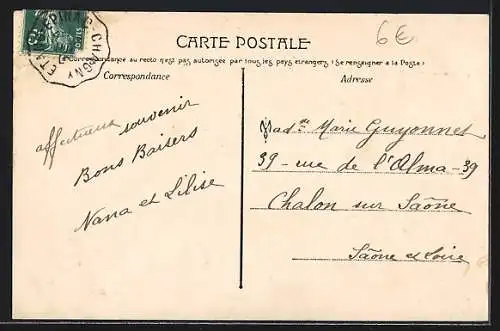 6€
CARTE POSTALE
La Correspondance au recto n'est pas autorisée par tous les pays étrangers (Se renseigner à la Poste)
Correspondance
Adresse
affectueux souvenir
Bons Baisers
Nana et Lilise
Madelle Marie Guyonnet
39 - rue de l'Alma - 39
Chalon sur Saône
Saône et Loire